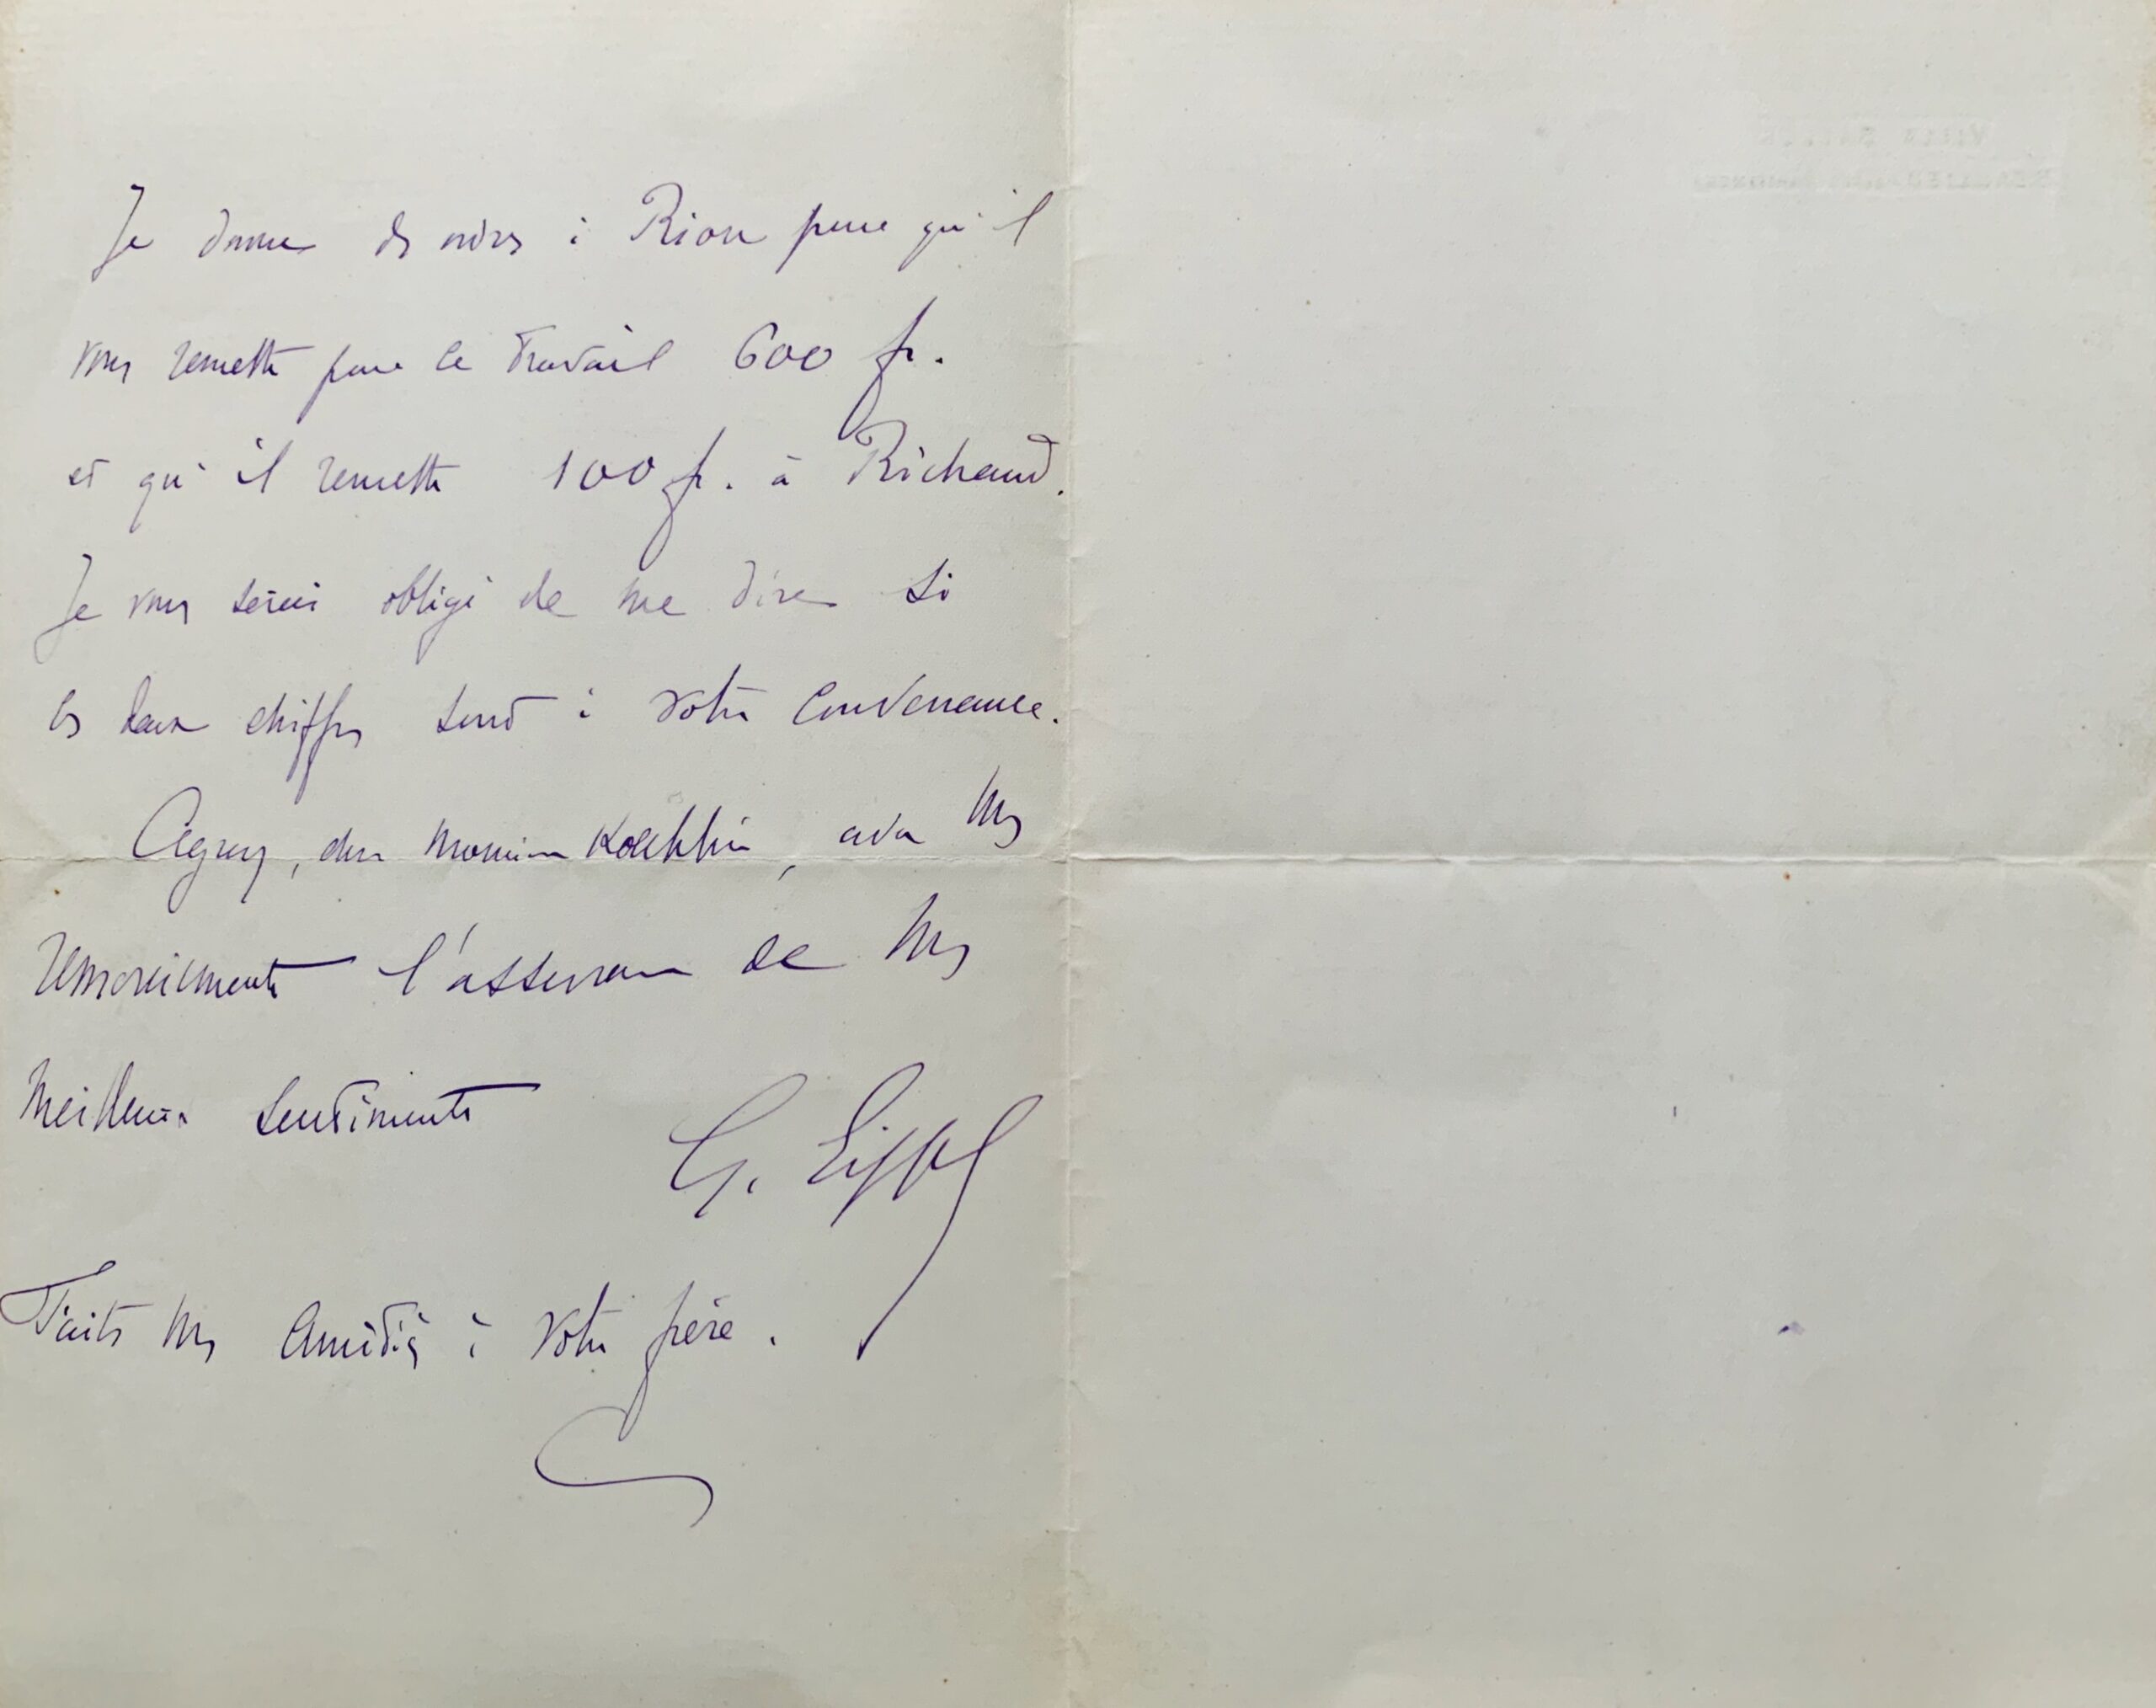 Je donne des ordres à Rion pour qu'il
vous remette pour ce travail 600 fr.
et qu'il remette 100 fr. à Richaud.
Je vous serai obligé de me dire si
ces deux chiffres sont à votre convenance.
Agréez, cher Monsieur Koechlin, avec mes
remerciements l'assurance de mes
meilleurs sentiments
G. Eiffel
Faites mes amitiés à votre frère.
VILLA
BEAULIEU